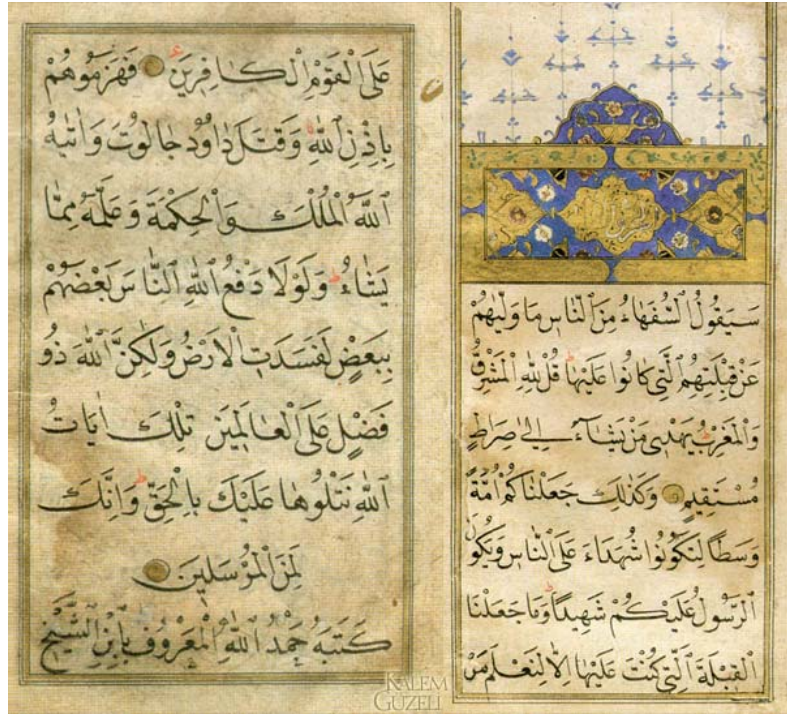 سَيَقُولُ السُّفَهَاءُ مِنَ النَّاسِ مَا وَلّٰيهُمْ
عَنْ قِبْلَتِهِمُ الَّتِى كَانُوا عَلَيْهَا قُلْ لِلّٰهِ الْمَشْرِقُ
وَالْمَغْرِبُ يَهْدِى مَنْ يَشَٓاءُ اِلٰى صِرَاطٍ
مُسْتَقِيمٍ وَكَذٰلِكَ جَعَلْنَاكُمْ اُمَّةً
وَسَطًا لِتَكُونُوا شُهَدَاءَ عَلَى النَّاسِ وَيَكُونَ
الرَّسُولُ عَلَيْكُمْ شَهِيدًا وَمَا جَعَلْنَا
الْقِبْلَةَ الَّتِى كُنْتَ عَلَيْهَا اِلَّا لِنَعْلَمَ مَنْ
عَلَى الْقَوْمِ الْكَافِرِينَ فَهَزَمُوهُمْ
بِاِذْنِ اللّٰهِ وَقَتَلَ دَاوُدُ جَالُوتَ وَاٰتٰيهُ
اللّٰهُ الْمُلْكَ وَالْحِكْمَةَ وَعَلَّمَهُ مِمَّا
يَشَاءُ وَلَوْلَا دَفْعُ اللّٰهِ النَّاسَ بَعْضَهُمْ
بِبَعْضٍ لَفَسَدَتِ الْاَرْضُ وَلٰكِنَّ اللّٰهَ ذُو
فَضْلٍ عَلَى الْعَالَمِينَ تِلْكَ اٰيَاتُ
اللّٰهِ نَتْلُوهَا عَلَيْكَ بِالْحَقِّ وَاِنَّكَ
لَمِنَ الْمُرْسَلِينَ
كَتَبَهُ حَمْدُ اللّٰهِ الْمَعْرُوفُ بِابْنِ الشَّيْخِ
KALEM
GUZELI